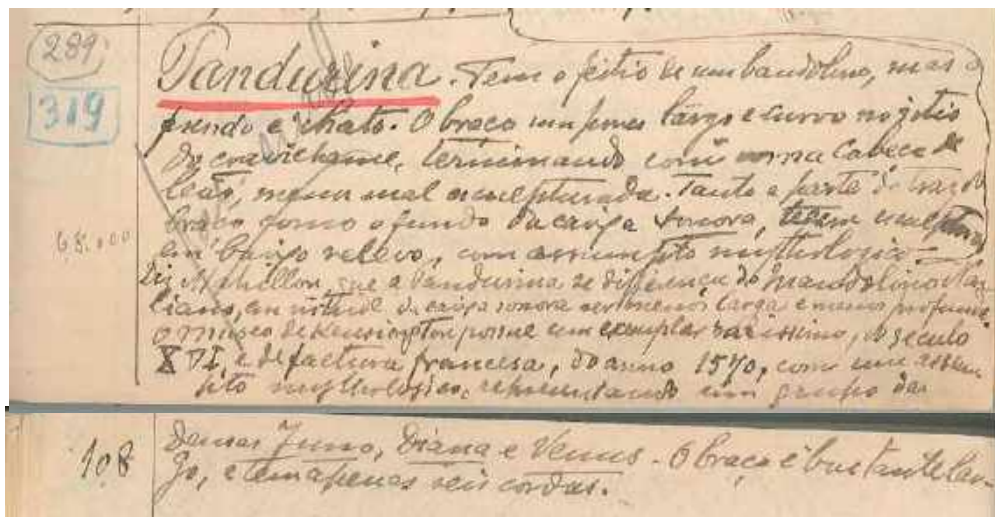 289
Pandurina. Tem o feitio de um bandolino, mas o
319
fundo é chato. O braço um pouco largo e curvo no jeito
do cravichame, terminando com uma cabeça de
leão, mal esculpturada. Tanto a parte de traz do
braço como o fundo da caixa sonora, teem esculptura
68.000
em baixo relevo, com assumpto mythologico.
Diz Mahillon, que a Pandurina se differença do Mandolino ita-
liano, em virtude da caixa sonora ser menos larga e menos profunda.
O museo de Kensington possue um exemplar rarissimo, do seculo
XVI, é de factura francesa, do anno 1570, com um assum-
pto mythologico, representando um grupo das
108
Juno, Diana e Venus. O braço é bastante lar-
go, e tem apenas seis cordas.